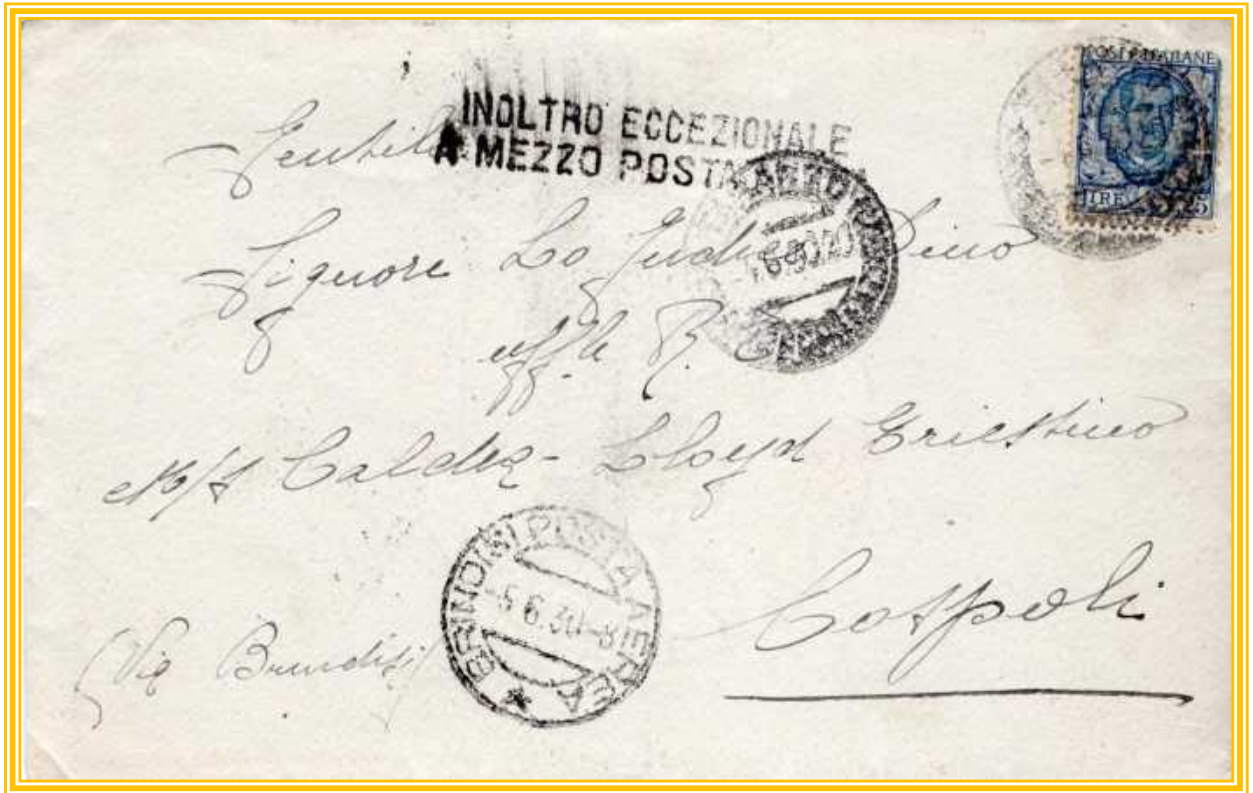 POSTE ITALIANE
LIRE 1,25
INOLTRO ECCEZIONALE
A MEZZO POSTA AEREA
Gentile
Signore Lo Dino
uff. R. T.
M/S Caldea - Lloyd Triestino
Cospoli
(Via Brindisi)
BRINDISI POSTA AEREA
-5 6 30 -8